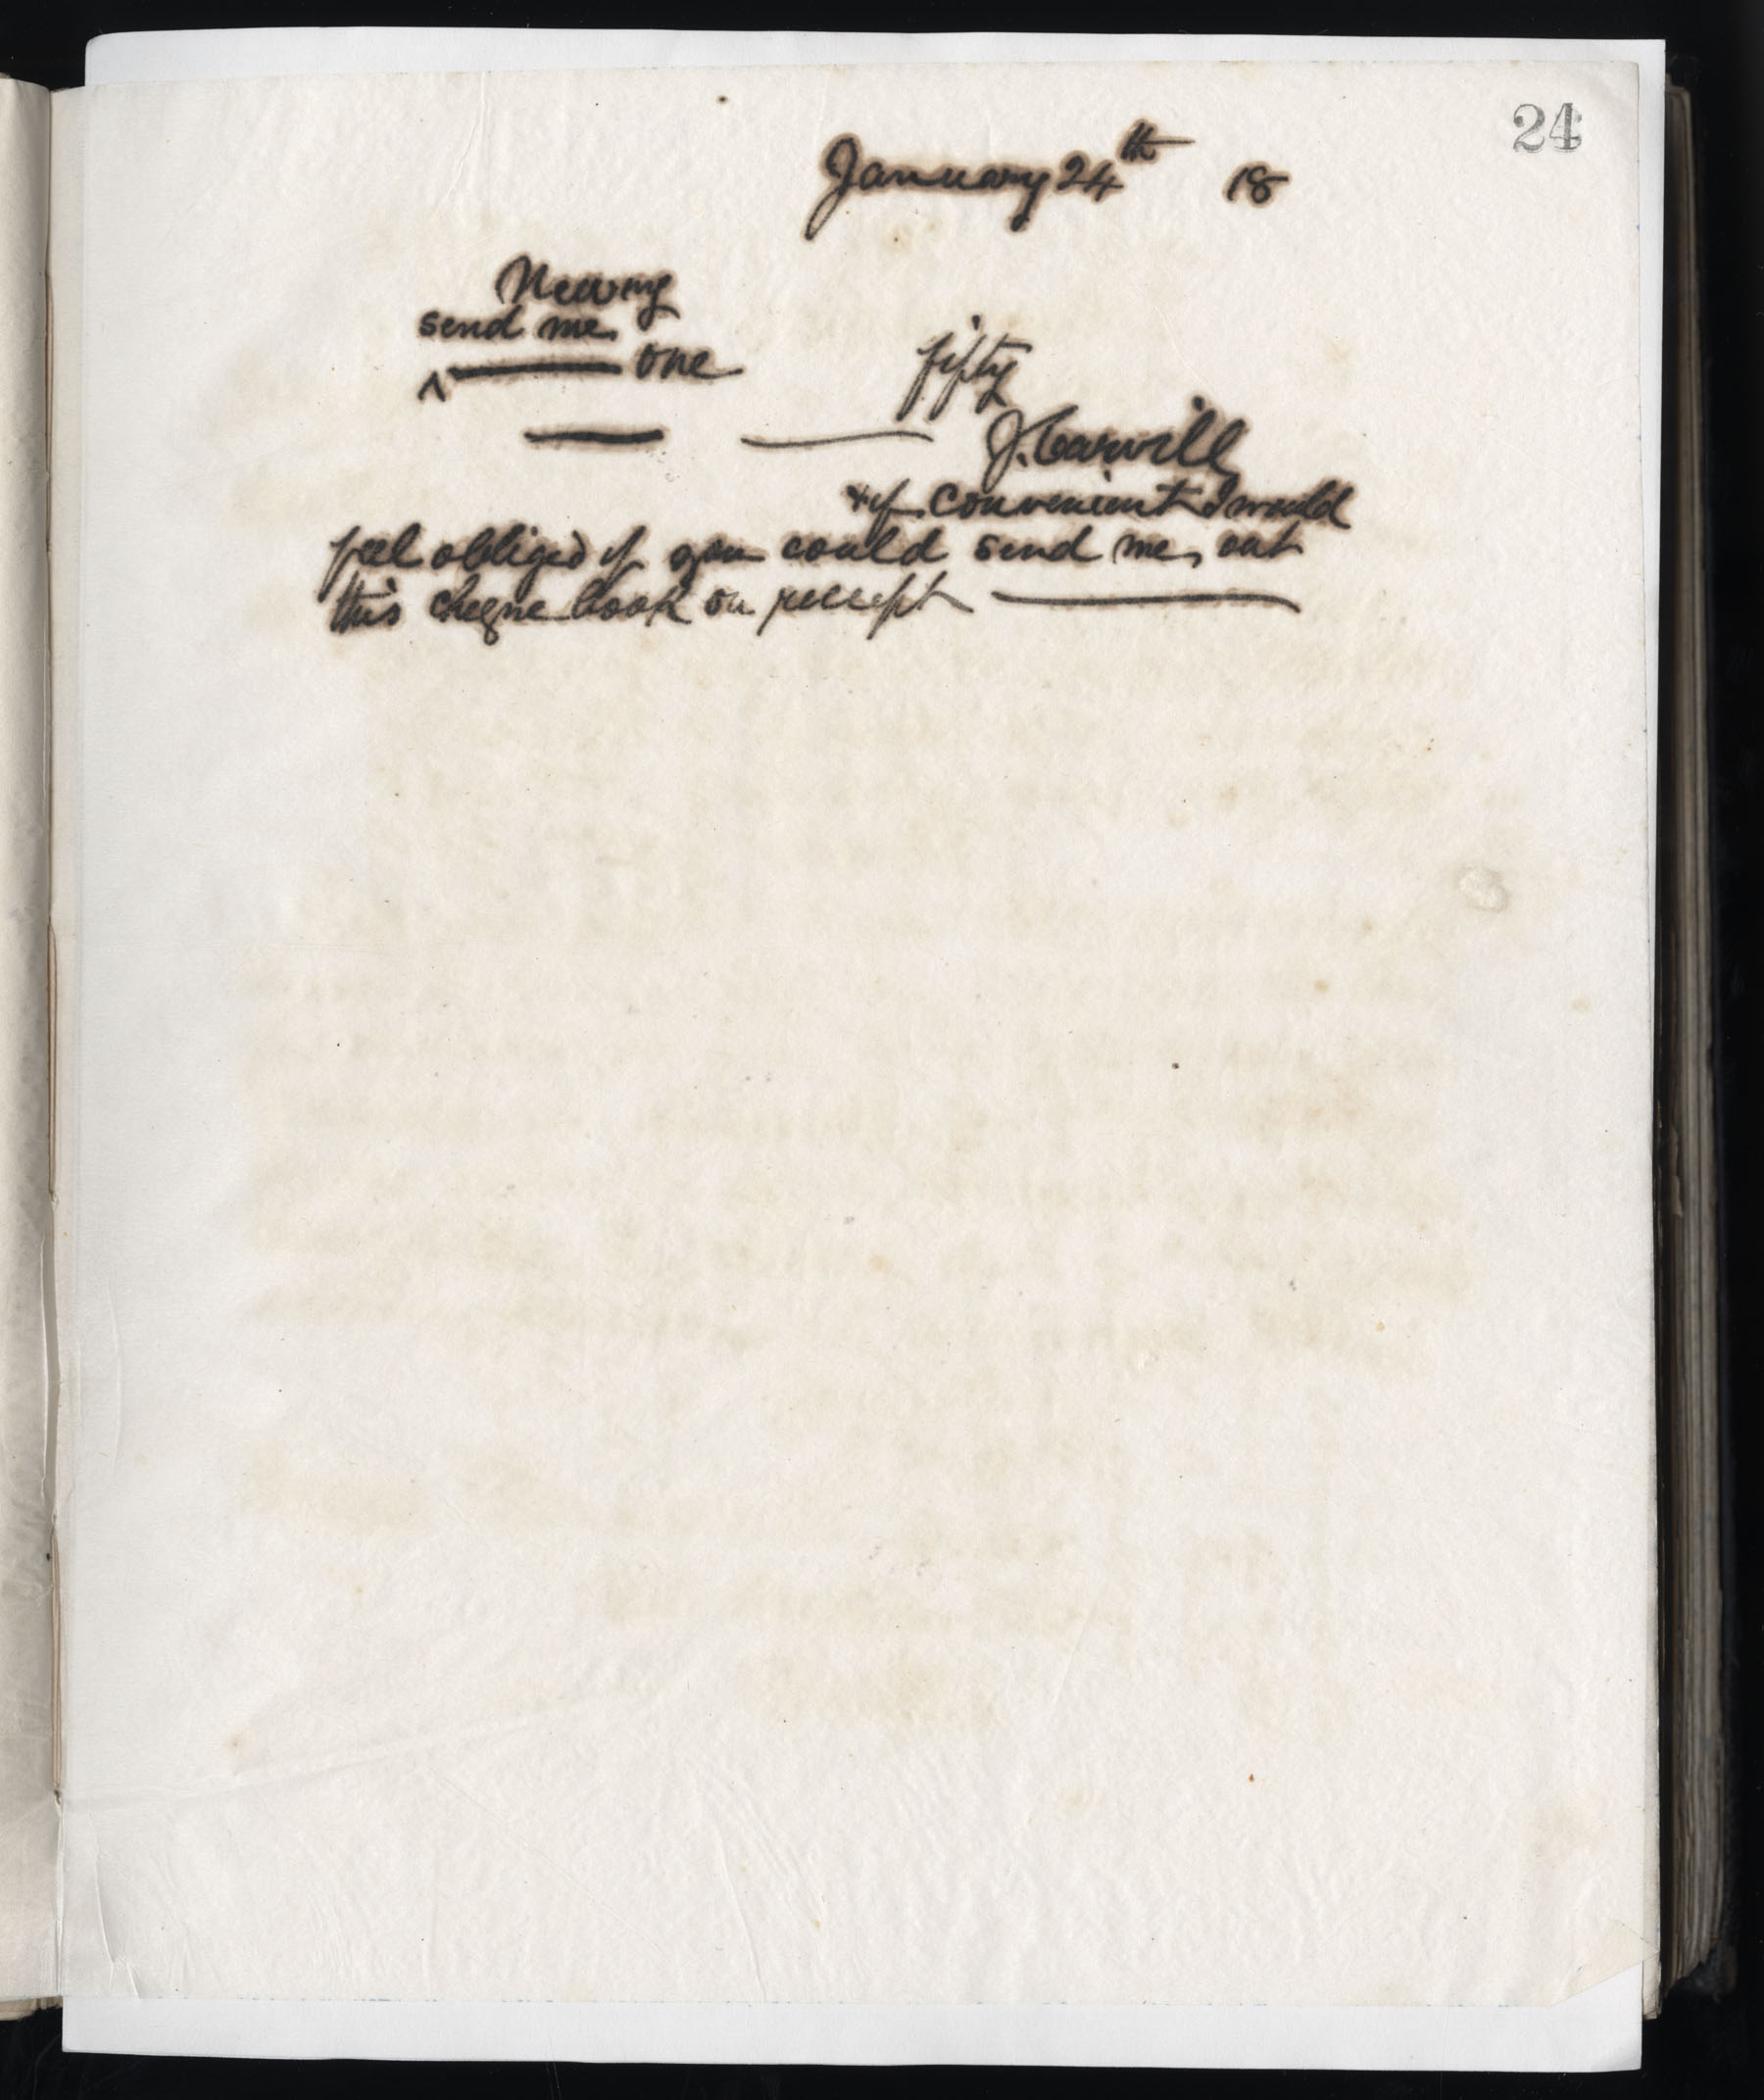 24
January 24th 18
Newry
send me
^ one
fifty
J. Carvill
+ if convenient I would
feel obliged if you could send me out
this cheque book on receipt